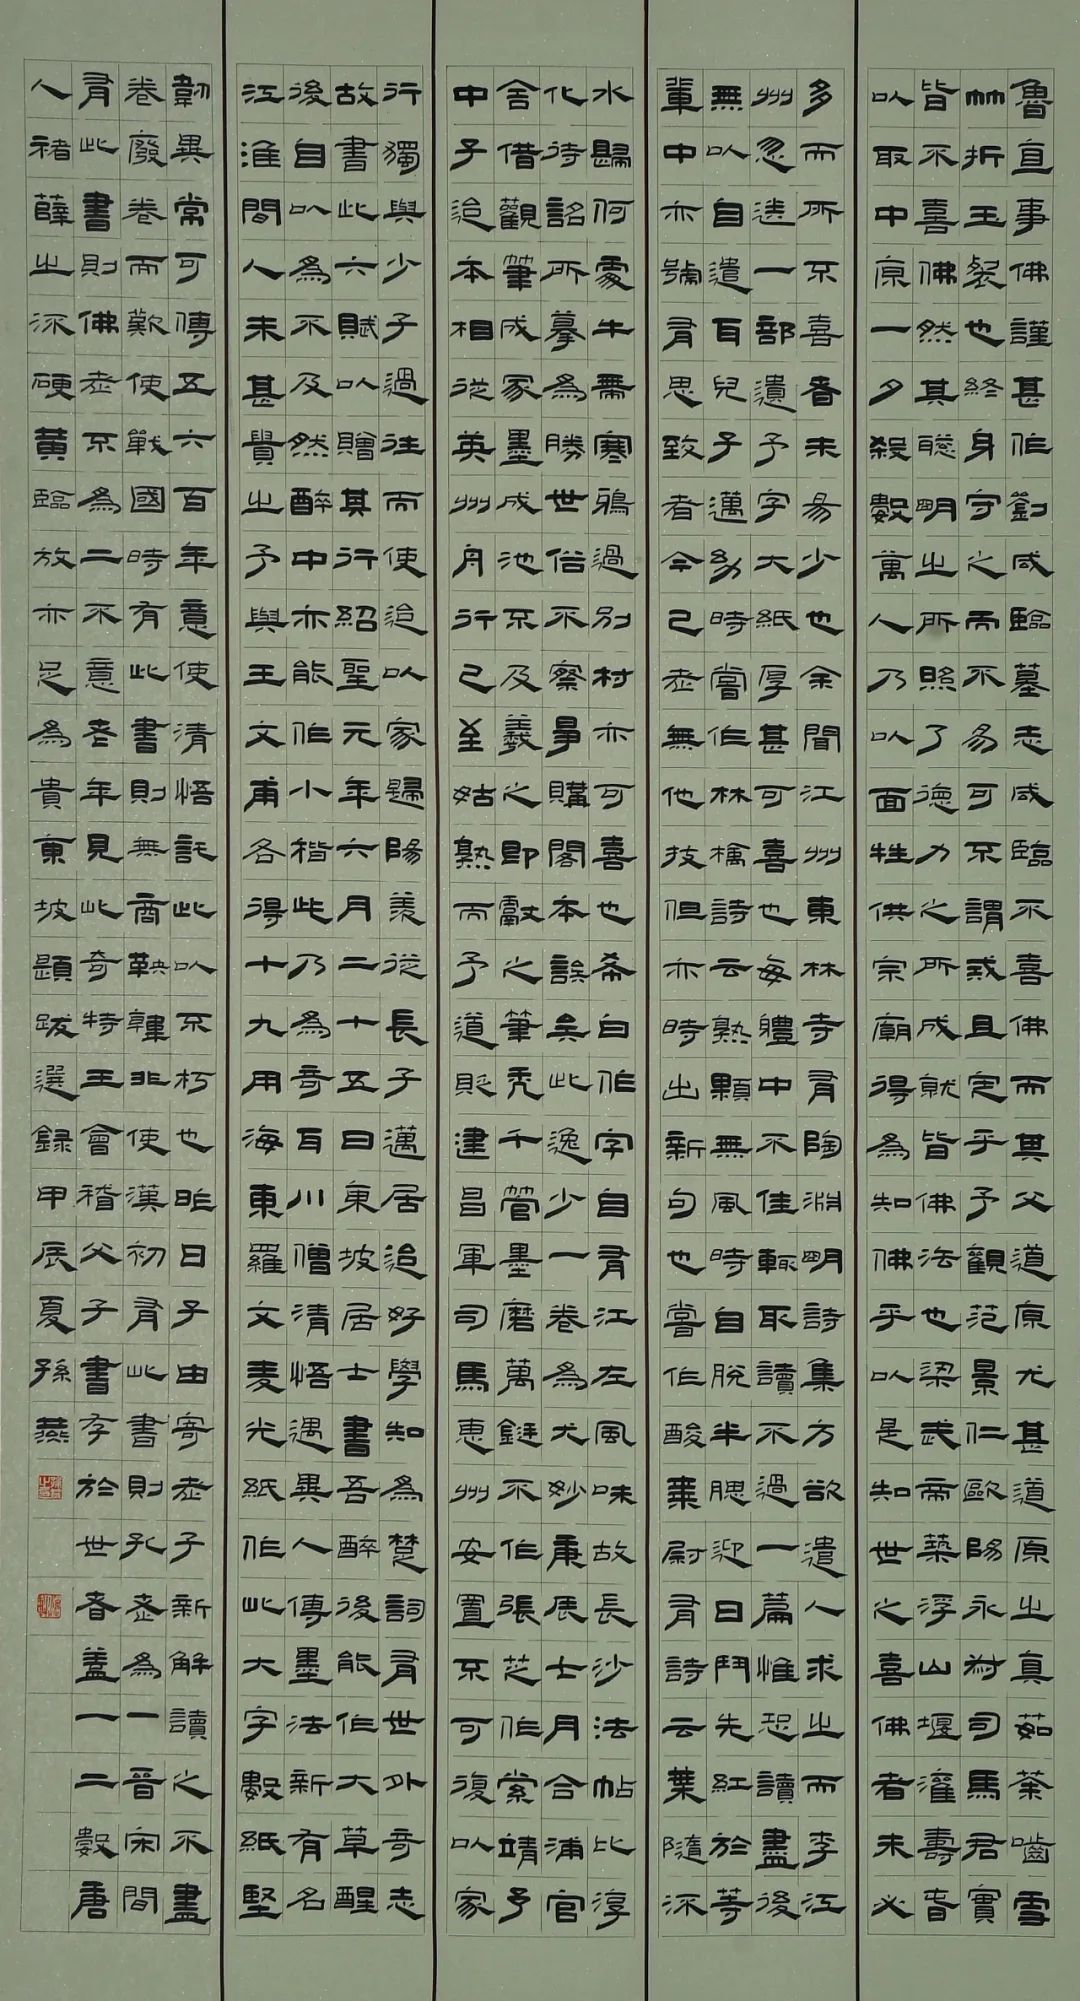 魯直事佛謹甚作劉咸臨墓志咸臨不喜佛而其父道原尤甚道原之真茹荼嚙雪
竹折玉裂也終身守之而不易可不謂或且定乎予觀范景仁歐陽永叔司馬君實
皆不喜佛然其聰明之所照了德力之所成就皆佛法也梁武帝築浮山堰灌壽春
以取中原一夕殺數萬人乃以面牲供宗廟得為知佛乎以是知世之喜佛者未必
多而所不喜者未易少也余聞江州東林寺有陶淵明詩集方欲遣人求之而李江
州忽送一部遺予字大紙厚甚可喜也每體中不佳輒取讀不過一篇惟恐讀盡後
無以自遣耳兒子邁幼時嘗作林檎詩云熟顆無風時自脫半腮迎日鬥先紅於等
輩中亦號有思致者今已老無他技但亦時出新句也嘗作酸棗尉有詩云葉隨流
水歸何處牛帶寒鴉過別村亦可喜也希白作字自有江左風味故長沙法帖比淳
化待詔所摹為勝世俗不察爭購閣本誤矣此逸少一卷為尤妙庚辰士月合浦官
舍借觀筆成冢墨成池不及羲之即獻之筆禿千管墨磨萬鋌不作張芝作索靖予
中子迨本相從英州舟行已至姑熟而予道貶建昌軍司馬惠州安置不可復以家
行獨與少子過往而使迨以家歸陽羨從長子邁居迨好學知為楚詞有世外奇志
故書此六賦以贈其行紹聖元年六月二十五日東坡居士書吾醉後能作大草醒
後自以為不及然醉中亦能作小楷此乃為奇耳川僧清悟遇異人傳墨法新有名
江淮間人未甚貴之予與王文甫各得十九用海東羅文麦光紙作此大字數紙堅
韌異常可傳五六百年意使清悟託此以不朽也昨日子由寄老子新解讀之不盡
卷廢卷而歎使戰國時有此書則無商鞅韓非使漢初有此書則孔老為一晉宋間
有此書則佛老不為二不意老年見此奇特王會稽父子書存於世者蓋一二數唐
人褚薛之流硬黃臨放亦足為貴東坡題跋選錄甲辰夏孫燕